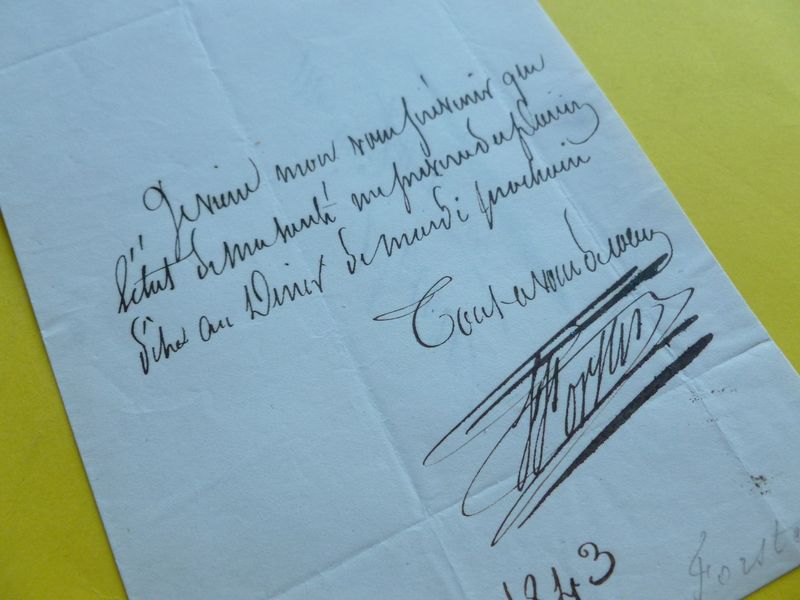 Je viens mon vous prévenir que
l'état de ma santé me prive du plaisir
d'être au Diner de mardi prochain
Tout a vous de coeur
1843
Forst